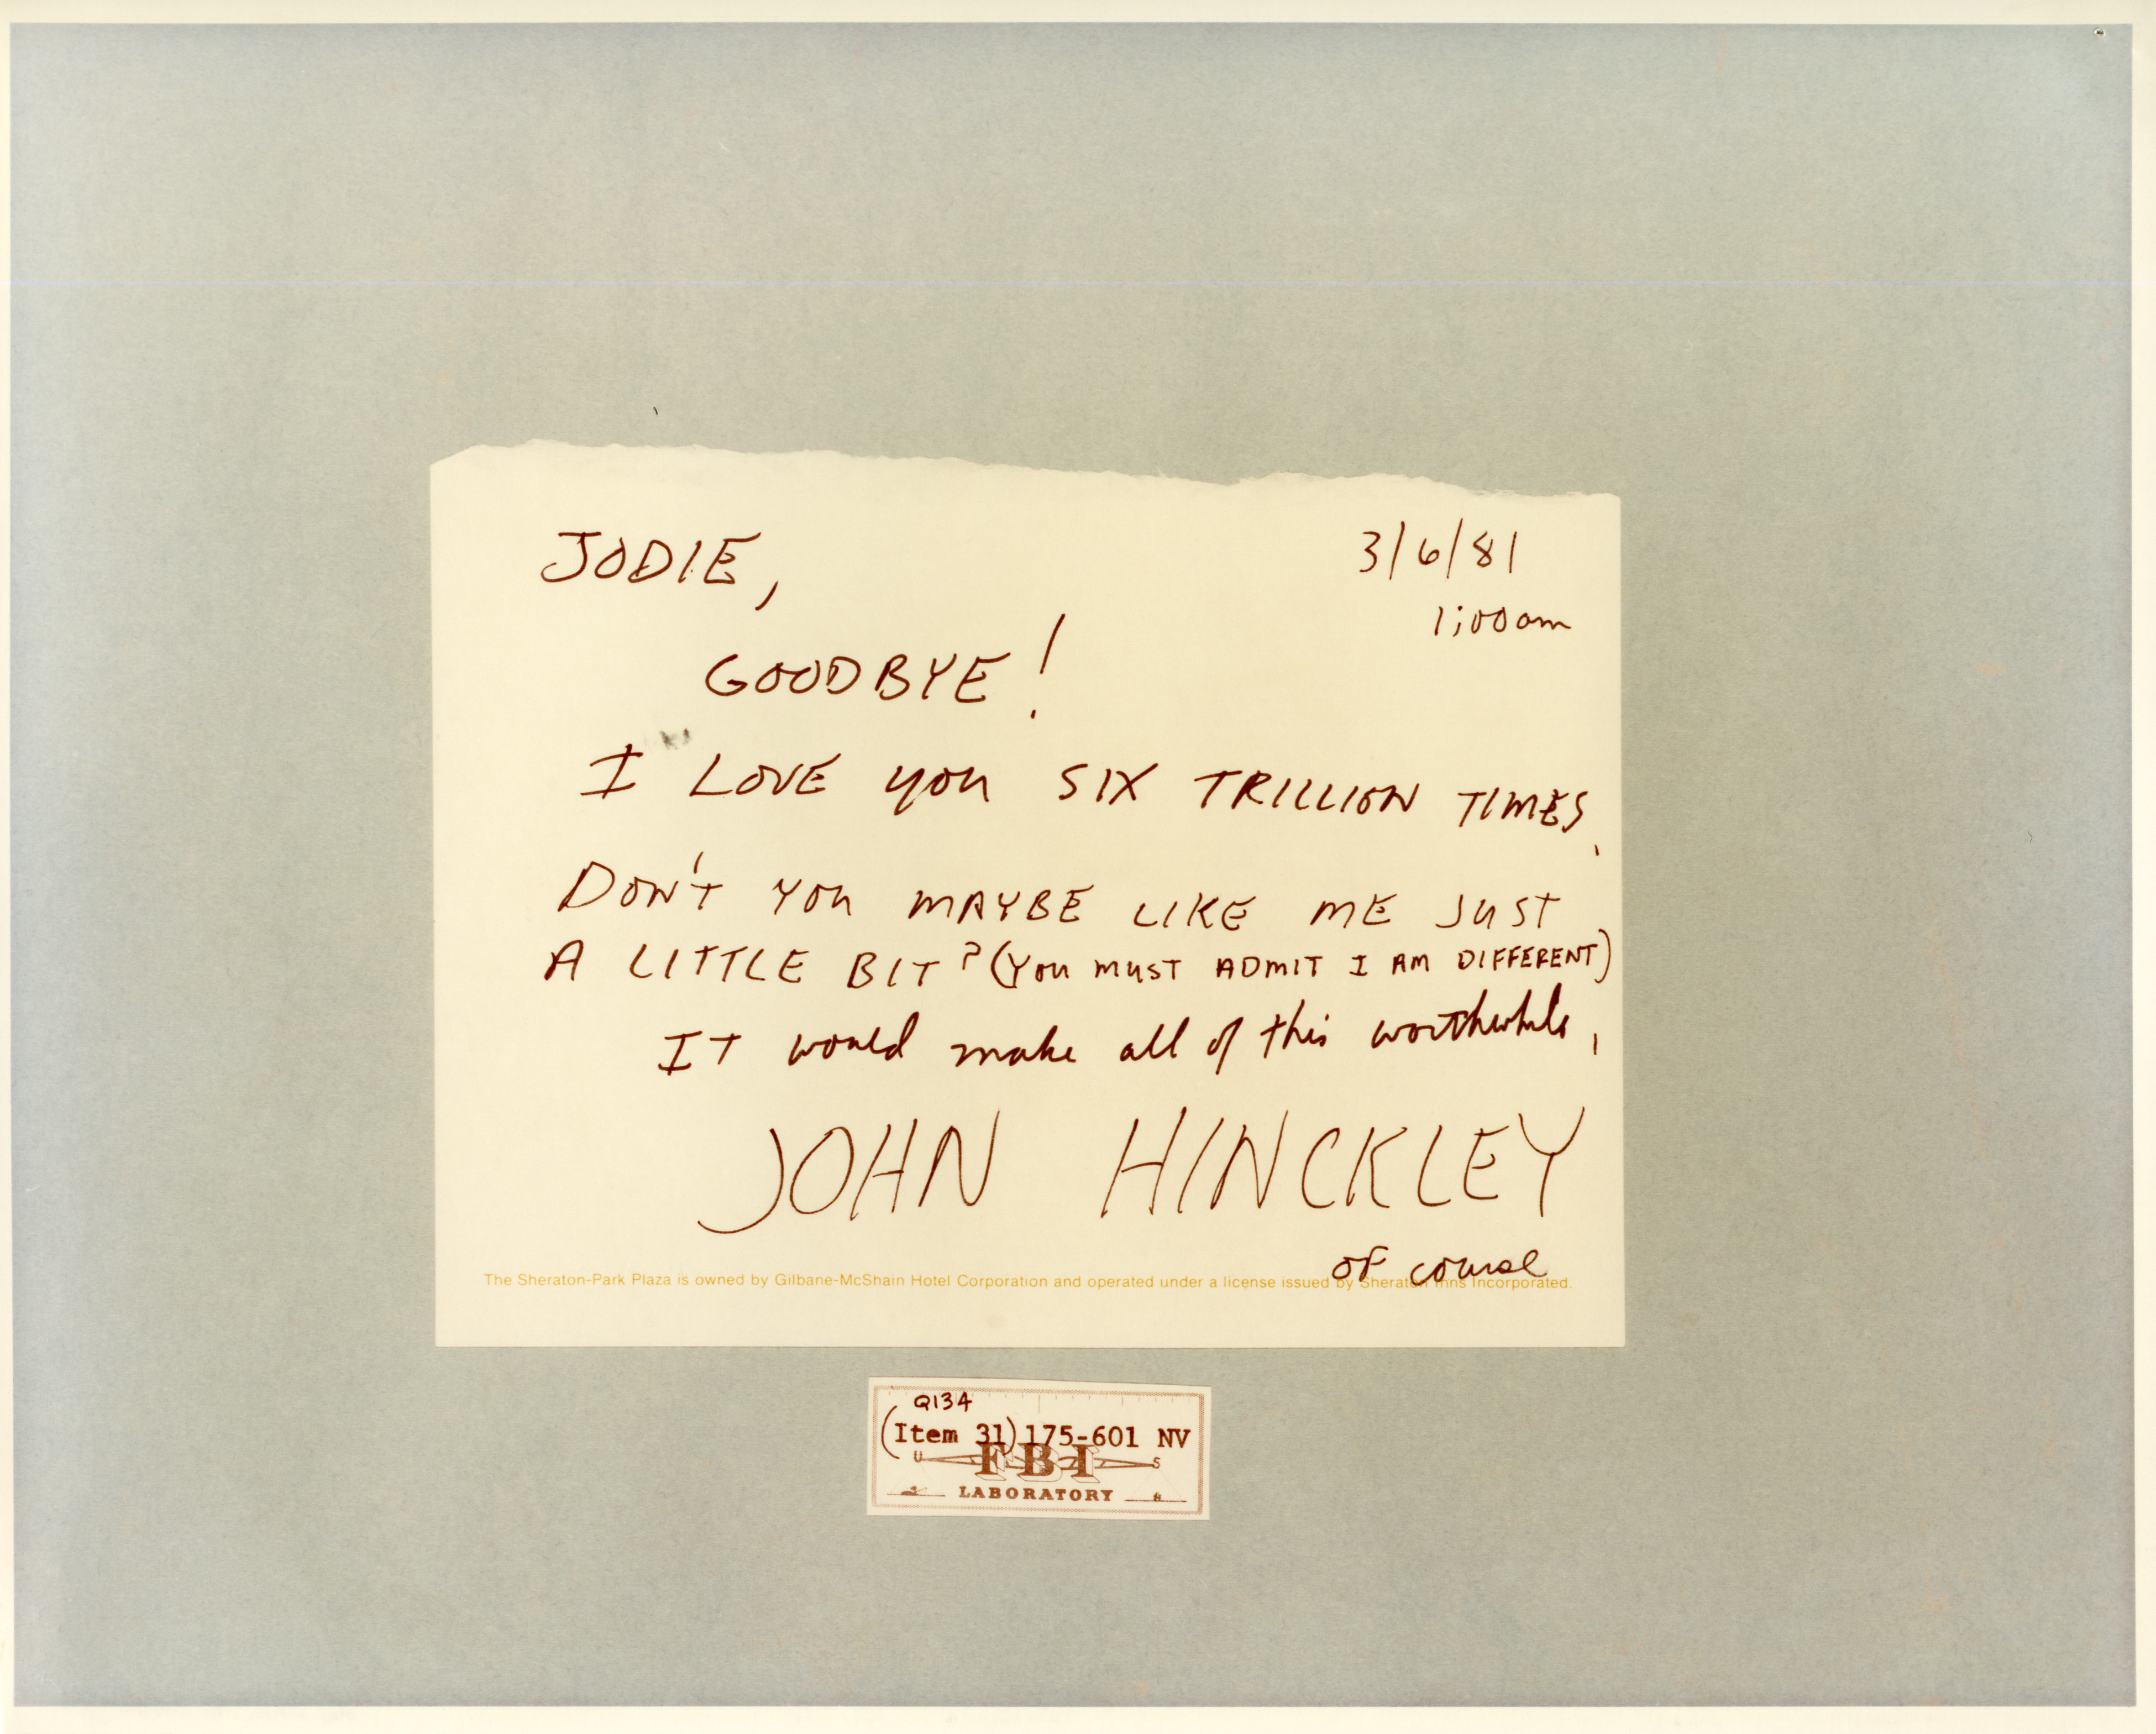 JODIE,
3/6/81
1:00am
GOODBYE!
I LOVE YOU SIX TRILLION TIMES.
DON'T YOU MAYBE LIKE ME JUST
A LITTLE BIT? (YOU MUST ADMIT I AM DIFFERENT)
IT would make all of this worthwhile.
JOHN HINCKLEY
of course
The Sheraton-Park Plaza is owned by Gilbane-McShain Hotel Corporation and operated under a license issued by Sheraton Inns Incorporated.
Q134
(Item 31) 175-601 NV
U FBI S
LABORATORY